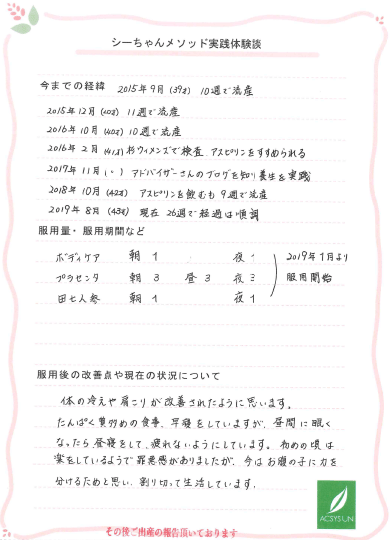 シーちゃんメソッド実践体験談
今までの経緯 2015年9月(39才) 10週で流産
2015年12月(40才) 11週で流産
2016年10月(40才) 10週で流産
2016年2月(41才)杉ウィメンズで検査 アスピリンをすすめられる
2017年11月(〃) アドバイザーさんのブログを知り養生を実践
2018年10月(42才) アスピリンを飲むも9週で流産
2019年8月(43才) 現在 26週で経過は順調
服用量・服用期間など
ボディケア 朝1 夜1 2019年1月より
プラセンタ 朝3 昼3 夜3 服用開始
田七人参 朝1 夜1
服用後の改善点や現在の状況について
体の冷えや肩こりが改善されたように思います。
たんぱく質多めの食事、早寝をしていますが、昼間に眠く
なったら昼寝をして、疲れないようにしています。初めの頃は
楽をしているようで罪悪感がありましたが、今はお腹の子に力を
分けるためと思い、割り切って生活しています。
ACSYSUN
その後ご出産の報告頂いております